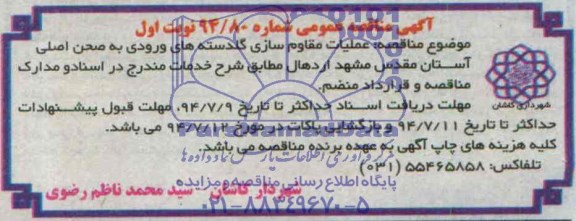 آگهی مناقصه عمومی شماره ۹۴/۸۰ نوبت اول
موضوع مناقصه: عملیات مقاوم سازی گلدسته های ورودی به صحن اصلی
آستان مقدس مشهد اردهال مطابق شرح خدمات مندرج در اسناد و مدارک
مناقصه و قرارداد منضم.
مهلت دریافت اسناد حداکثر تا تاریخ ۹۴/۷/۹، مهلت قبول پیشنهادات
حداکثر تا تاریخ ۹۴/۷/۱۱ و بازگشایی پاکات در مورخ ۹۴/۷/۱۲ می باشد.
کلیه هزینه های چاپ آگهی به عهده برنده مناقصه می باشد.
تلفاکس: ۵۵۴۶۵۸۵۸ (۰۳۱)
شهردار کاشان - سید محمد ناظم رضوی
شهرداری کاشان
پایگاه اطلاع رسانی مناقصه و مزایده
۰۲۱-۸۸۳۴۹۶۷۰-۵